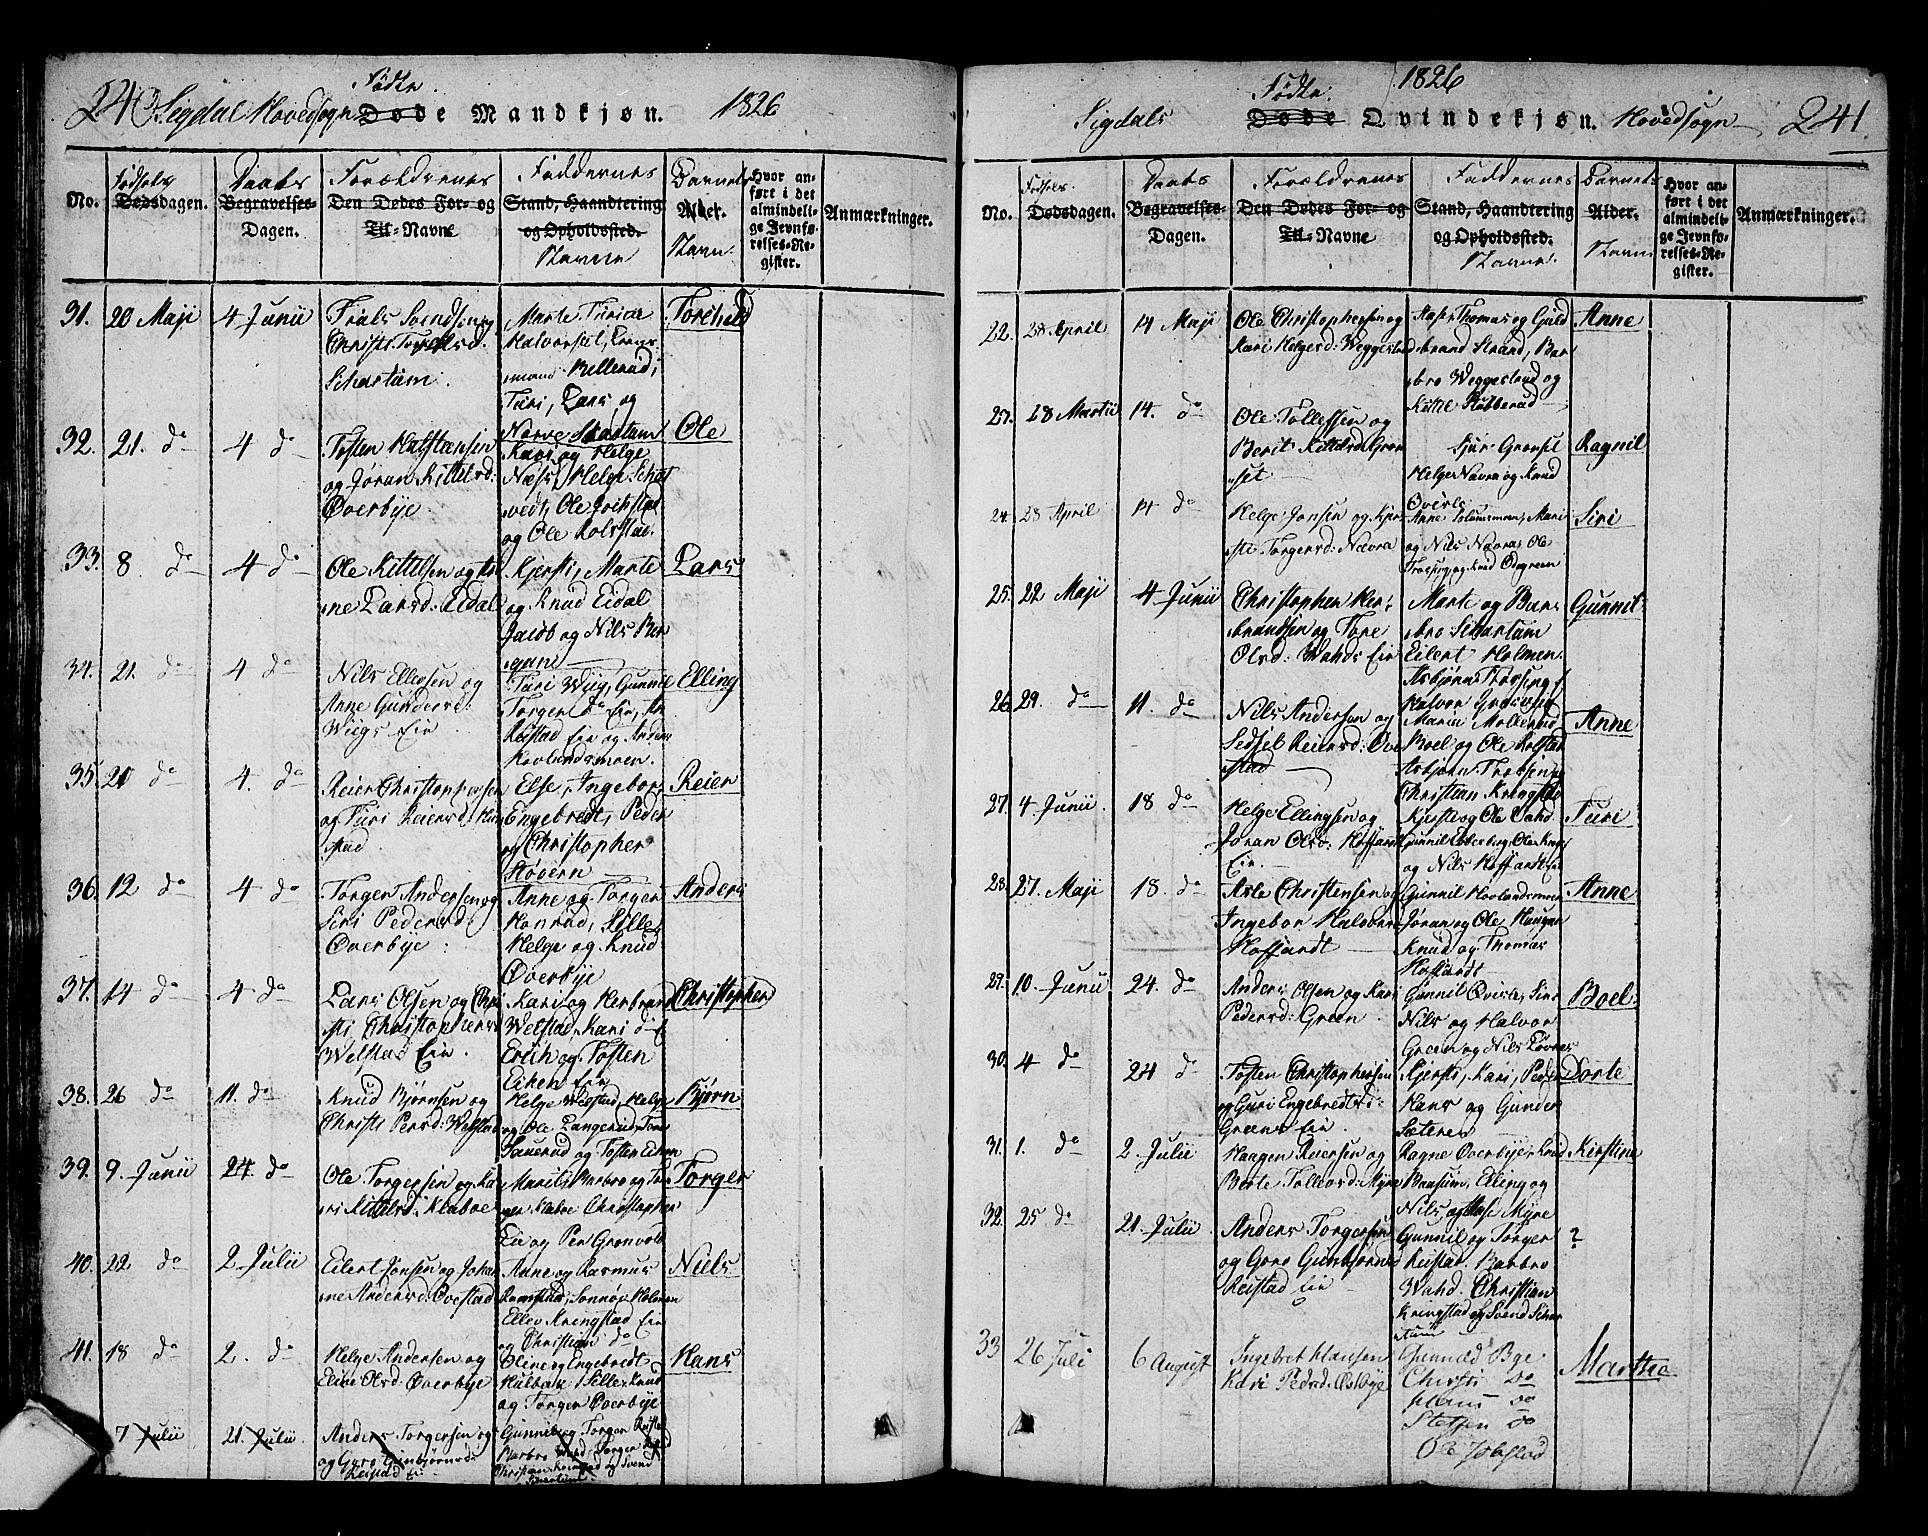 240 Sigdal Hovedsogn Fødte Døde Mandkjøn. 1826
No.
Fødsels Dødsdagen.
Daabs Begravelses-Dagen.
Forældrenes Den Dødes For- og Til-Navne
Faddernes Stand, Haandtering og Opholdssted. Navne
Barnets Alder. Navn
Hvor anført i det almindelige Jevnførelses-Register.
Anmærkninger.
31. 20 Maji 4 Junii
Christi
Schartum.
Marte Turine
Halvorset, Erens
mand Bellerud,
Turi, Lars og
Narve Skartum
Torehild
32. 21. do 4 do
Tosten Halstensen
og Jøran Kittelsd:
Overbye.
Kari og Helge
Næss, Helge Schat
vedt, Ole Grikstad
og Ole Kolstad.
Ole
33. 8. do 4 do
Ole Kittelsen og
ne Larsd: Eidal
Kjersti, Marte
og Knud Eidal
Jacob og Nils Ber
gane
Lars
34. 21. do 4 do
Nils Ellevsen og
Anne Gundersd:
Wiigs Eie.
Turi Wiig, Gunnil
Torger do Eie, An
Reistad Eie og Anders
Hovlandsmoen.
Elling
35. 21 do 4. do
Reier Christophersen
og Turi Reiersd:
stad.
Else, Ingebor,
Engebredt, Peder
og Christopher
Støvern
Reier
36. 12 do 4 do
Torger Andersen og
Siri Pedersd:
Overbye:
Anne og Torger
Honrud, Sille,
Helge og Knud
Overbye
Anders
37. 14 do 4 do
Lars Olsen og Chri
sti Christophersd
Welstad Eie.
Kari og Herbrand
Welstad, Kari do
Erich og Tosten
Eiken Eie
Christopher
38. 26 do 11. do
Knud Bjørnsen og
Christi Persd: Welstad
Helge Welstad, Helge
og Ole Langerud, Tore
Sauerud og Tosten Eiken
Bjørn
39. 9. Junii 24. do
Ole Torgersen og Ka
ri Kittelsd: Klaboe
Marit, Barbro og Tor
ger Klaboe Christopher
Eie og Per Grønvold
Torger
40. 22 do 2 Julii
Eilert Jonsen og Johan
ne Andersd: Ovestad
Anne og Rasmus
Ramstad, Sønnøv Holmen
Ellev Kringstad Eie
og Christian do
Niels
41. 18 do 2. do
Helge Andersen og
Eline Olsd: Overbye
Oline og Engebredt
Hulbak, Sille, Knud
og Torger Overbye
Hans
7 Julii 21. Julii
Anders Torgersen og
og Goro Gunbjørnsd:
Reistad Eie
Gunnil og Torger Reistad
Barbro Wahd, Torger
Christian Kringstad og Svend
Schartum.
Sigdals Fødte Døde Qvindekjøn. 1826 Hovedsogn 241
No.
Fødsels. Dødsdagen.
Daabs Begravelses-Dagen.
Forældrenes Den Dødes For- og Til-Navne
Faddernes Stand, Haandtering og Opholdssted. Navne
Barnets Alder. Navn
Hvor anført i det almindelige Jevnførelses-Register.
Anmærkninger.
22. 28 April 14 Maji
Ole Christophersen og
Kari Helgesd: Weggestad
Aase, Thomas og Guld
brand Strand, Bar
bro Weggestad og
Kittel Kobberud
Anne
23. 28 Martii 14. do
Ole Tollefsen og
Berit Kittelsd: Grøn
set
Sjur Grønset
Helge Nævra og Knud
Overle
Ragnil
24. 28 April 14 do
Helge Jonsen og Kjer
sti Torgersd: Nævra
Anne Solumsmoen, Mari
og Nils Nævra, Ole
Traspøy og Knud Ødegreen
Siri
25. 22 Maji 4 Junii
Christopher Her
brandsen og Tore
Olsd: Wahds Eie
Marte og Bar
bro Schartum
Eilert Holmen.
Asbjørn
Halvor
Gunnil
26. 29. do 11. do
Nils Andersen og
Sedsel Reiersd: Ove
stad
Maria Mollerud
Boel og Ole Kolstad
Asbjørn
Christian Kringstad
Anne
27. 4 Junii 18 do
Helge Ellingsen og
Jøran Olsd: Hoffardt
Eie.
Kjersti og Ole Wahd
Gunnil Loberg, Ole
og Nils Hoffardt
Turi
28. 27. Maji 18. do
Asle Christensen og
Ingebor Halvorsd
Hoffardt
Gunnil Hovlandsmoen
Jøran og Ole Haugan
Knud og Thomas
Hoffardt
Anne
29. 10. Junii 24. do
Anders Olsen og Kari
Pedersd: Green
Gunnil Overle, Siri
Nils og Halvor
Green og Nils Løvnæs
Boel
30. 4 do 24 do
Tosten Christophersen
og Guri Engebretsd:
Greens Eie.
Kjersti, Kari, Peder
Hans og Gunder
Sæteren
Dorte
31. 1. do 2. Julii
Haagen Reiersen og
Berte Tollevsd: Myre
Ragne Overbye, Knud
Baasum, Elling og
Nils og Aase Myre
Kirstine
32. 25 do 21. Julii
Anders Torgersen
og Goro Gunbjørnsd
Reistad Eie
Gunnil og Torger
Reistad. Barbro
Wahd. Christian
Kringstad og Svend Schar
tum
?
33 26 Juli 6 August
Ingebret Hansen
Kari Pedersd: Østbye
Gunnild Bye.
Christi Do
Hans do
Steffen do
Ole Jokstad
Marthe